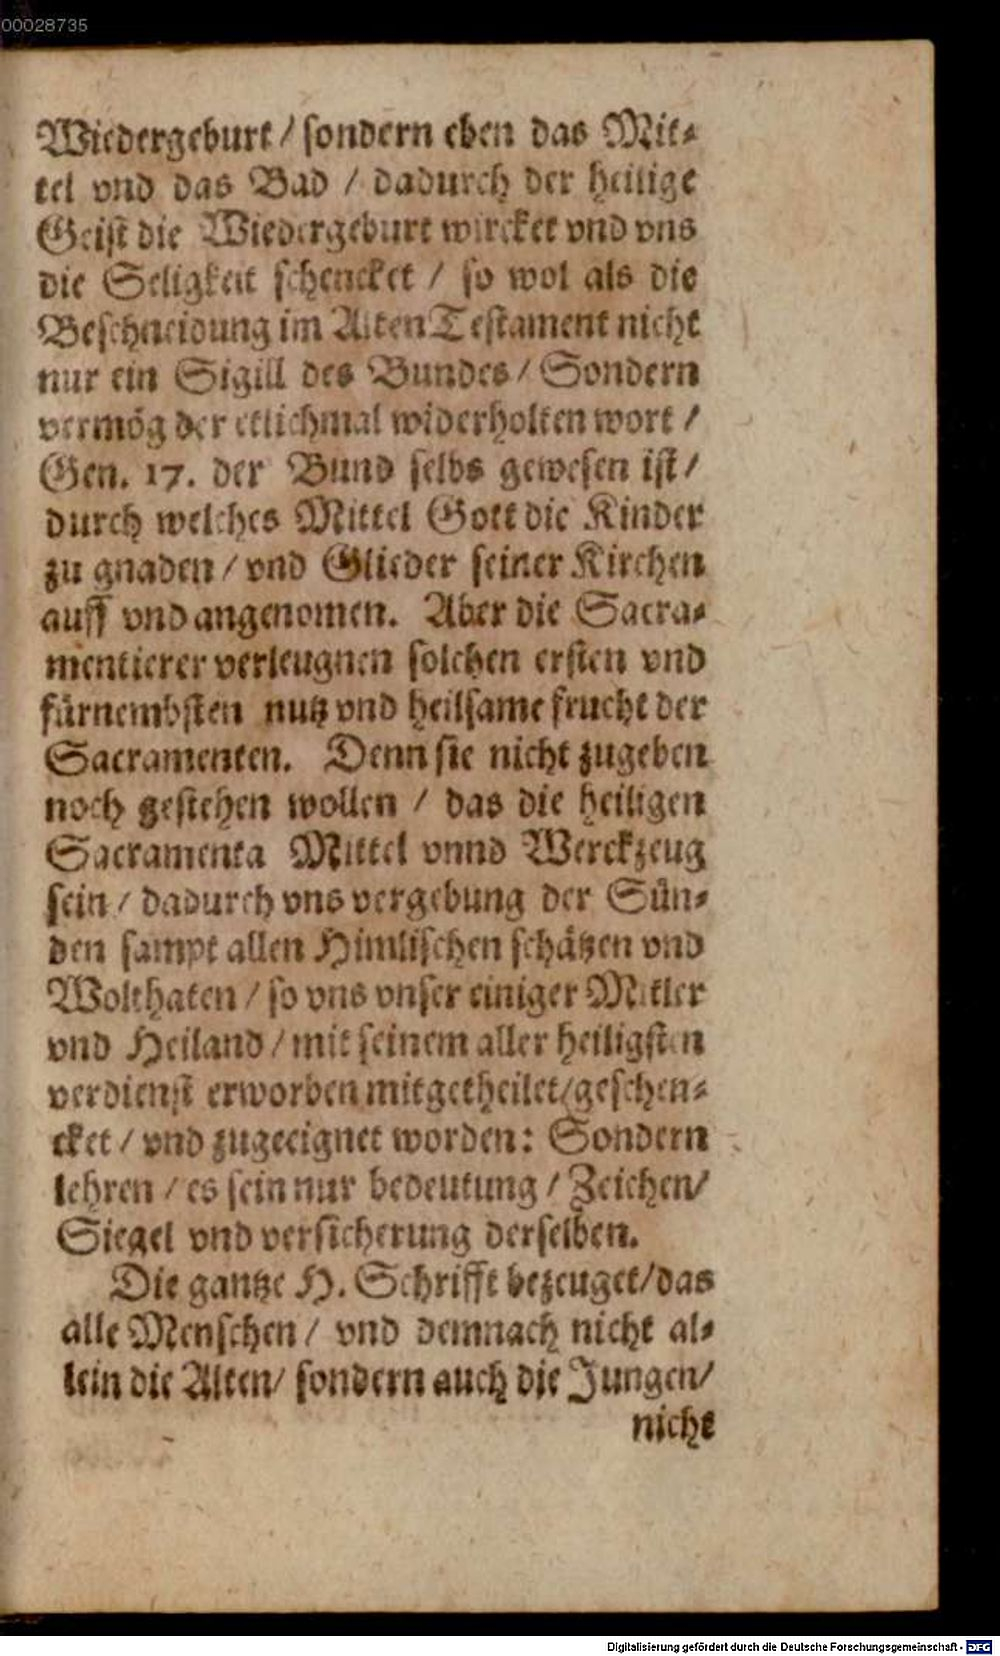 00028735
Wiedergeburt / sondern eben das Mit⸗
tel vnd das Bad / dadurch der heilige
Geist die Wiedergeburt wircket vnd vns
die Seligkeit schencket / so wol als die
Beschneidung im Alten Testament nicht
nur ein Sigill des Bundes / Sondern
vermög der etlichmal widerholten wort /
Gen. 17. der Bund selbs gewesen ist /
durch welches Mittel Gott die Kinder
zu gnaden / vnd Glieder seiner Kirchen
auff vnd angenomen. Aber die Sacra⸗
mentierer verleugnen solchen ersten vnd
fürnembsten nutz vnd heilsame frucht der
Sacramenten. Denn sie nicht zugeben
noch gestehen wollen / das die heiligen
Sacramenta Mittel vnnd Werckzeug
sein / dadurch vns vergebung der Sün⸗
den sampt allen Himlischen schätzen vnd
Wolthaten / so vns vnser einiger Mitler
vnd Heiland / mit seinem aller heiligsten
verdienst erworben mitgetheilet / geschen⸗
cket / vnd zugeeignet worden: Sondern
lehren / es sein nur bedeutung / Zeichen /
Siegel vnd versicherung derselben.
Die gantze H. Schrifft bezeuget / das
alle Menschen / vnd demnach nicht al⸗
lein die Alten / sondern auch die Jungen /
nicht
Digitalisierung gefördert durch die Deutsche Forschungsgemeinschaft - DFG